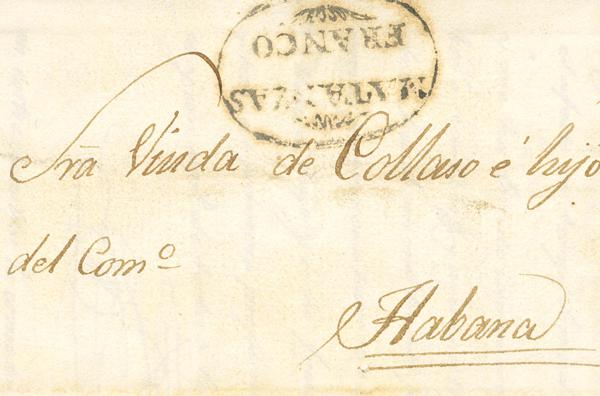 MATANZAS
FRANCO
Sra Viuda de Collaso é hijo
del Comº
Habana